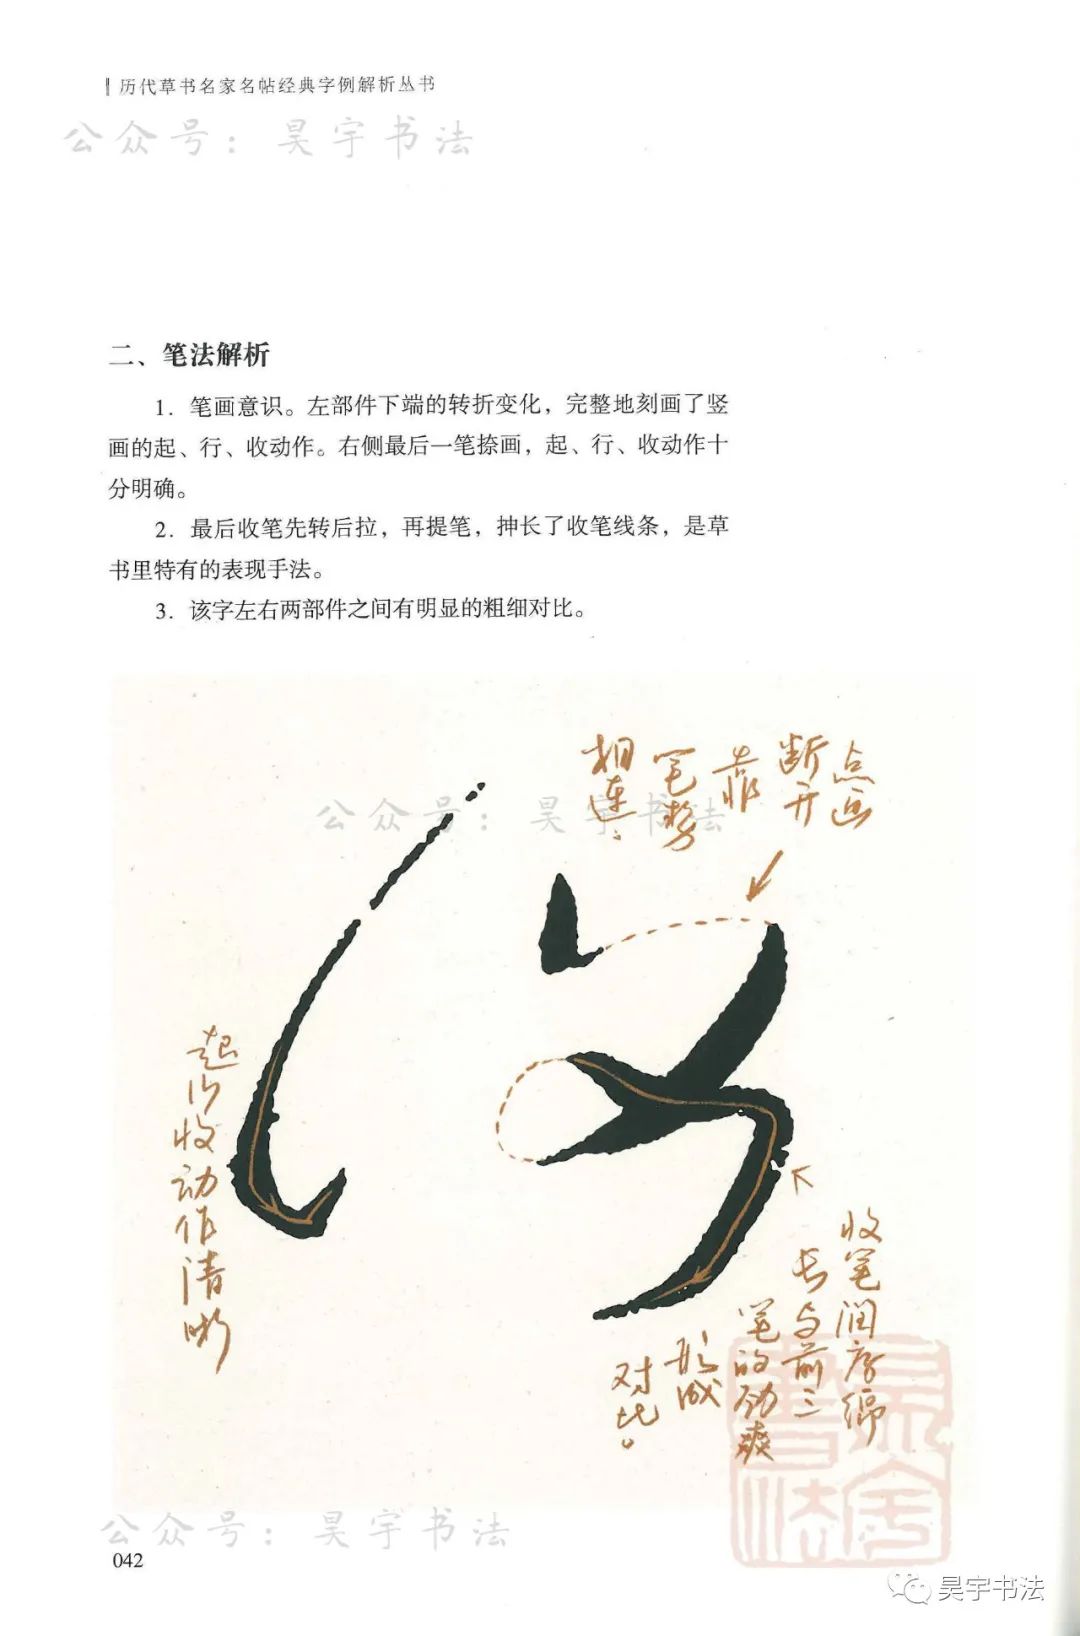 历代草书名家名帖经典字例解析丛书
公众号：昊宇书法
二、笔法解析
1. 笔画意识。左部件下端的转折变化，完整地刻画了竖
画的起、行、收动作。右侧最后一笔捺画，起、行、收动作十
分明确。
2. 最后收笔先转后拉，再提笔，抻长了收笔线条，是草
书里特有的表现手法。
3. 该字左右两部件之间有明显的粗细对比。
点画
断开
靠
笔势
相连。
公众号：昊宇书法
起行收动作清晰
收笔润厚绵
长与前三
笔的劲爽
形成
对比。
昊宇书法
公众号：昊宇书法
042
昊宇书法